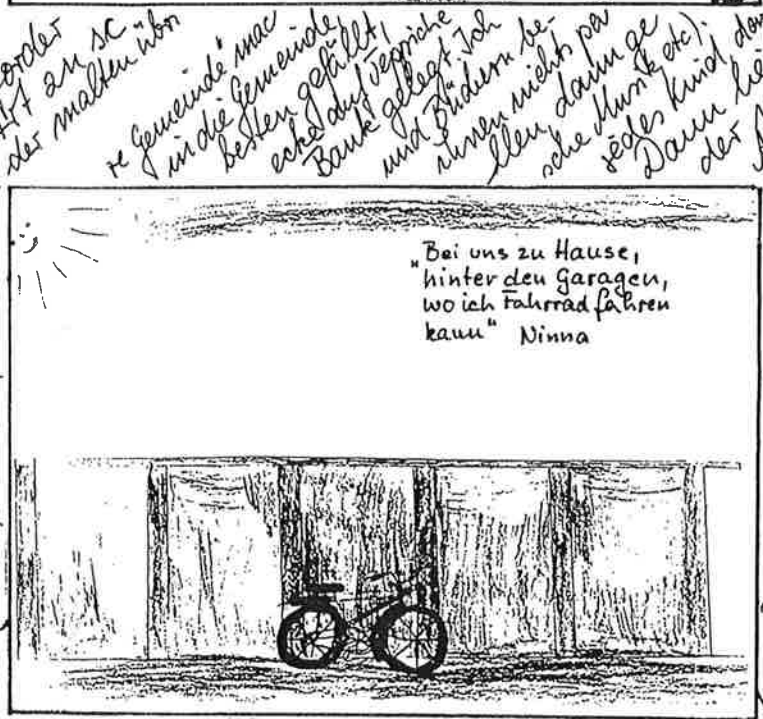 order
Art an sc
der malten über
re Gemeinde mac
in die Gemeinde,
besten gefällt,
ecke auf Teppiche
Bank gelegt. Ich
und Büchern be-
ihnen nichts
llen, dann ge
sche Musik etc).
jedes Kind
Dann
der
"Bei uns zu Hause,
hinter den Garagen,
wo ich Fahrrad fahren
kann" Ninna